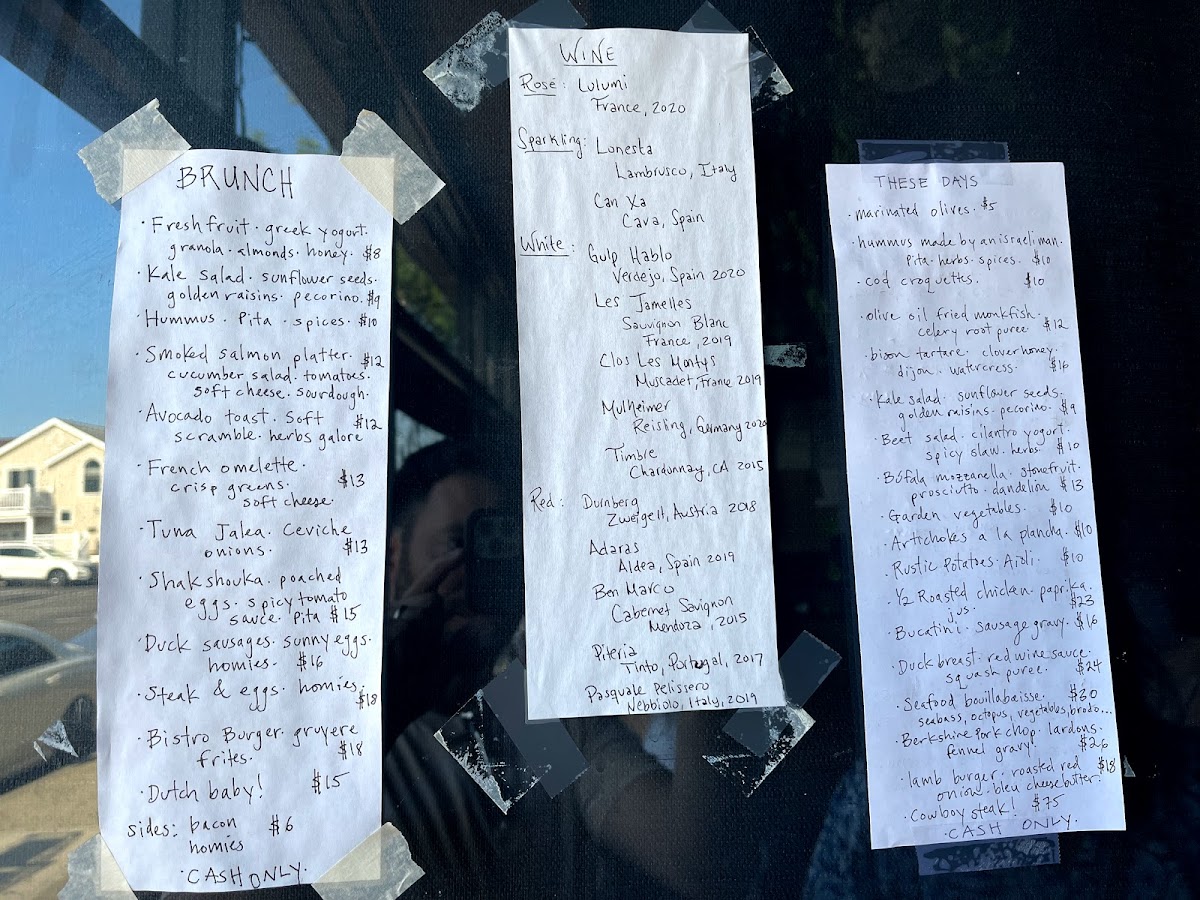 BRUNCH
· Fresh fruit · greek yogurt ·
granola · almonds · honey · $8
· Kale salad · sunflower seeds ·
golden raisins · pecorino · $9
· Hummus · Pita · spices · $10
· Smoked salmon platter · $12
cucumber salad · tomatoes ·
soft cheese · sourdough ·
· Avocado toast · soft $12
scramble · herbs galore
· French omelette ·
crisp greens · $13
soft cheese ·
· Tuna Jalea · Ceviche
onions · $13
· Shakshouka · poached
eggs · spicy tomato
sauce · Pita $15
· Duck sausages · sunny eggs ·
homies · $16
· Steak & eggs · homies · $18
· Bistro Burger · gruyere
frites · $18
· Dutch baby! $15
sides: bacon $6
homies
· CASH ONLY ·
WINE
Rosé: Lulumi
France, 2020
Sparkling: Lonesta
Lambrusco, Italy
Can Xa
Cava, Spain
White: Gulp Hablo
Verdejo, Spain 2020
Les Jamelles
Sauvignon Blanc
France, 2019
Clos Les Montys
Muscadet, France 2019
Mulheimer
Reisling, Germany 2020
Timbre
Chardonnay, CA 2015
Red: Durnberg
Zweigelt, Austria 2018
Adaras
Aldea, Spain 2019
Ben Marco
Cabernet Savignon
Mendoza, 2015
Piteria
Tinto, Portugal, 2017
Pasquale Pelissero
Nebbiolo, Italy, 2019
THESE DAYS
· marinated olives · $5
· hummus made by an israeli man ·
pita · herbs · spices · $10
· cod croquettes · $10
· olive oil fried monkfish ·
celery root puree · $12
· bison tartare · clover honey ·
dijon · watercress · $16
· Kale salad · sunflower seeds ·
golden raisins · pecorino · $9
· Beet salad · cilantro yogurt ·
spicy slaw · herbs · $10
· Búfala mozzarella · stonefruit ·
prosciutto · dandelion $13
· Garden vegetables · $10
· Artichokes a la plancha · $10
· Rustic Potatoes · Aioli · $10
· 1/2 Roasted chicken · paprika ·
jus · $23
· Bucatini · sausage gravy · $16
· Duck breast · red wine sauce ·
squash puree · $24
· Seafood bouillabaisse · $30
seabass, octopus, vegetables, brodo...
· Berkshire Pork chop · lardons ·
fennel gravy! $26
· lamb burger · roasted red $18
onion · bleu cheese butter ·
· Cowboy steak! $75
· CASH ONLY ·